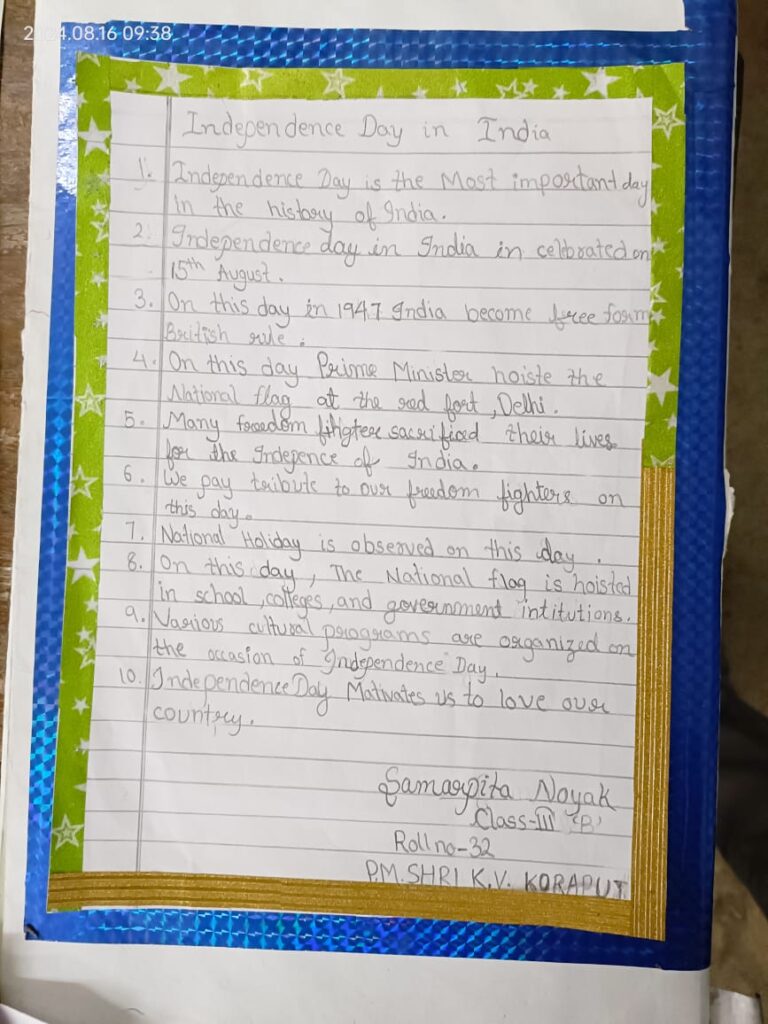 2024.08.16 09:38
Independence Day in India
1. Independence Day is the Most important day
in the history of India.
2. Independence day in India in celebrated on
15th August.
3. On this day in 1947 India become free form
British rule.
4. On this day Prime Minister hoiste the
National flag at the red fort, Delhi.
5. Many freedom fihigter sacrificed their lives
for the Indepence of India.
6. We pay tribute to our freedom fighters on
this day.
7. National Holiday is observed on this day.
8. On this day, The National flag is hoisted
in school, colleges, and government intitutions.
9. Various cultural programs are organized on
the occasion of Independence Day.
10. Independence Day Mativates us to love our
country.
Samarpita Nayak
Class-III 'B'
Roll no-32
P.M. SHRI K.V. KORAPUT